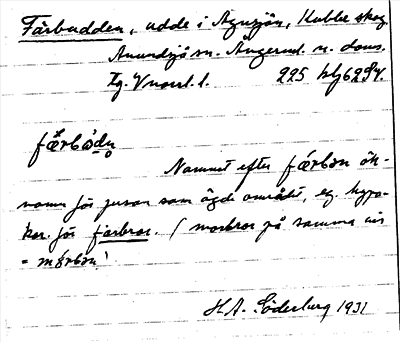 Färbudden, udde i Agnsjön, Kubbe skog
Anundsjö sn. Ångerml. n. doms.
Tg. V norrl. l. 225 kg6284.
færbỏdn
Namnet efter fǽrbon ök-
namn för person som ägde området, eg. hypo-
kor. för farbror. (morbror på samma vis
= mórbon!
H.A. Söderburg 1931